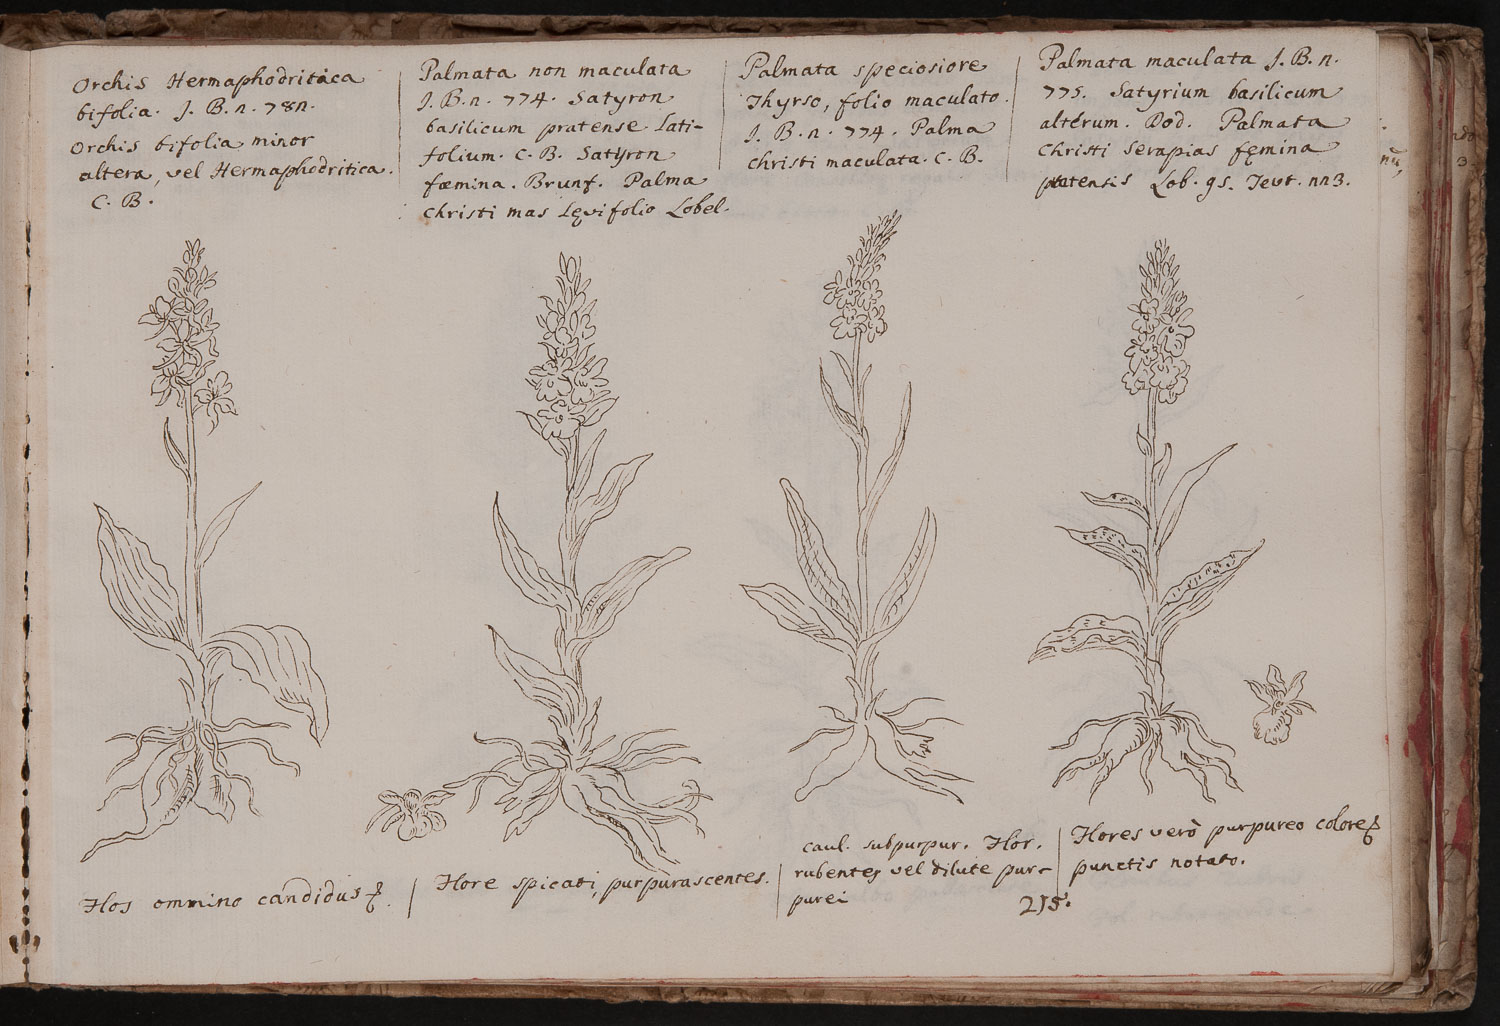 Orchis Hermaphodritica
bifolia. J. B. n. 78n.
Orchis bifolia minor
altera, vel Hermaphodritica.
C. B.
Palmata non maculata
J. B. n. 774. Satyron
basilicum pratense Lati-
folium. C. B. Satyron
fœmina. Brunf. Palma
christi mas Lęvifolio Lobel.
Palmata speciosiore
Thyrso, folio maculato.
J. B. n. 774. Palma
christi maculata. C. B.
Palmata maculata J. B. n.
775. Satyrium basilicum
alterum. Dod. Palmata
christi Serapias fęmina
pratensis Lob. 95. Icut. nn3.
Flos ommino candidus
Flore spicati, purpurascentes.
caul. subpurpur. Flor.
rubentes vel dilute pur-
purei
Flores verò purpureo colore
punctis notato.
215.